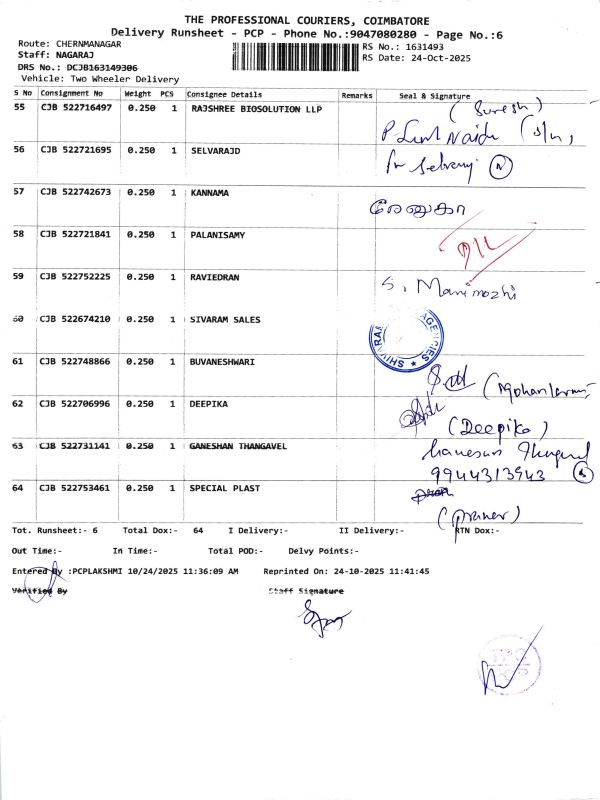 THE PROFESSIONAL COURIERS, COIMBATORE
Delivery Runsheet - PCP - Phone No.:9047080280 - Page No.:6
Route: CHERNMANAGAR
RS No.: 1631493
Staff: NAGARAJ
RS Date: 24-Oct-2025
DRS No.: DCJB163149306
Vehicle: Two Wheeler Delivery
S No Consignment No Weight PCS Consignee Details Remarks Seal & Signature
55 CJB 522716497 0.250 1 RAJSHREE BIOSOLUTION LLP
(Suresh)
56 CJB 522721695 0.250 1 SELVARAJD
57 CJB 522742673 0.250 1 KANNAMA
ரேணுகா
58 CJB 522721841 0.250 1 PALANISAMY
59 CJB 522752225 0.250 1 RAVIEDRAN
S. Manimozhi
60 CJB 522674210 0.250 1 SIVARAM SALES
AGENCIES
61 CJB 522748866 0.250 1 BUVANESHWARI
62 CJB 522706996 0.250 1 DEEPIKA
(Deepika)
63 CJB 522731141 0.250 1 GANESHAN THANGAVEL
9944313943
64 CJB 522753461 0.250 1 SPECIAL PLAST
Tot. Runsheet:- 6 Total Dox:- 64 I Delivery:- II Delivery:- RTN Dox:-
Out Time:- In Time:- Total POD:- Delvy Points:-
Entered By :PCPLAKSHMI 10/24/2025 11:36:09 AM Reprinted On: 24-10-2025 11:41:45
Verified By Staff Signature